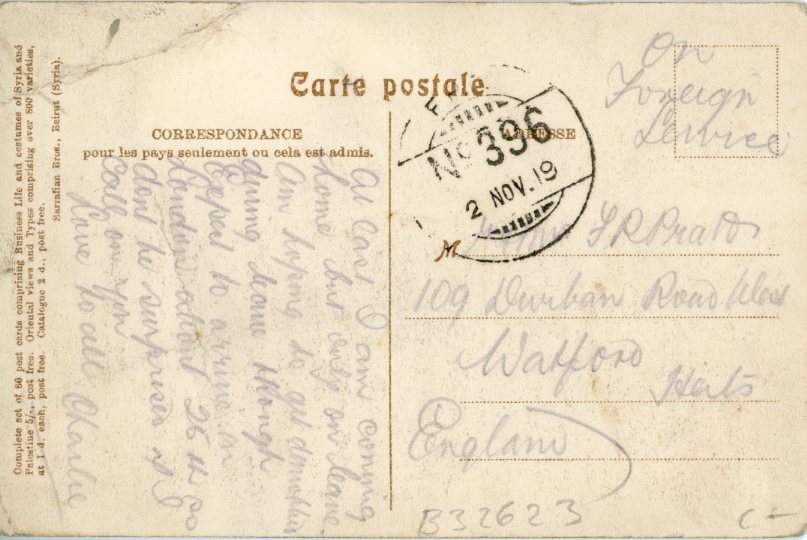 Complete set of 60 post cards comprising Business Life and costumes of Syria and
Palestine 5/-, post free. Oriental views and Types comprising over 800 varieties,
at 1 d. each, post free. Catalogue 2 d., post free.
Sarrafian Bros., Beirut (Syria).
Carte postale
CORRESPONDANCE
pour les pays seulement ou cela est admis.
At last I am coming
home but only on leave.
Am hoping to get
during leave though
Expect to arrive in
London about 26th so
dont be surprised if I
Call on you
Love to all Charlie
On
Foreign
Service
ADRESSE
No 396
2 NOV. 19
M
F R Pratt
109 Durban Road West
Watford
Herts
England
B32623
C-